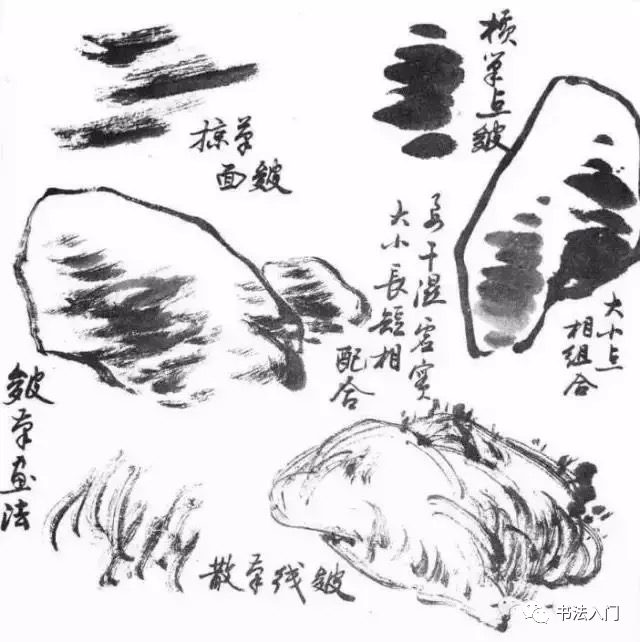 掠笔
面皴
横笔点皴
要干湿虚实
大小長短相
配合
大小点
相组合
皴笔画法
散笔线皴
书法入门